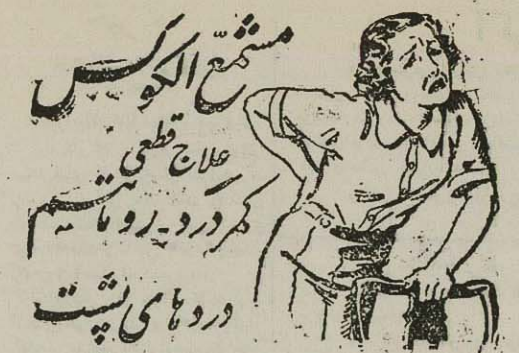 مشمّع الکوکس
علاج قطعی
کمر درد - روماتیسم
دردهای پشت